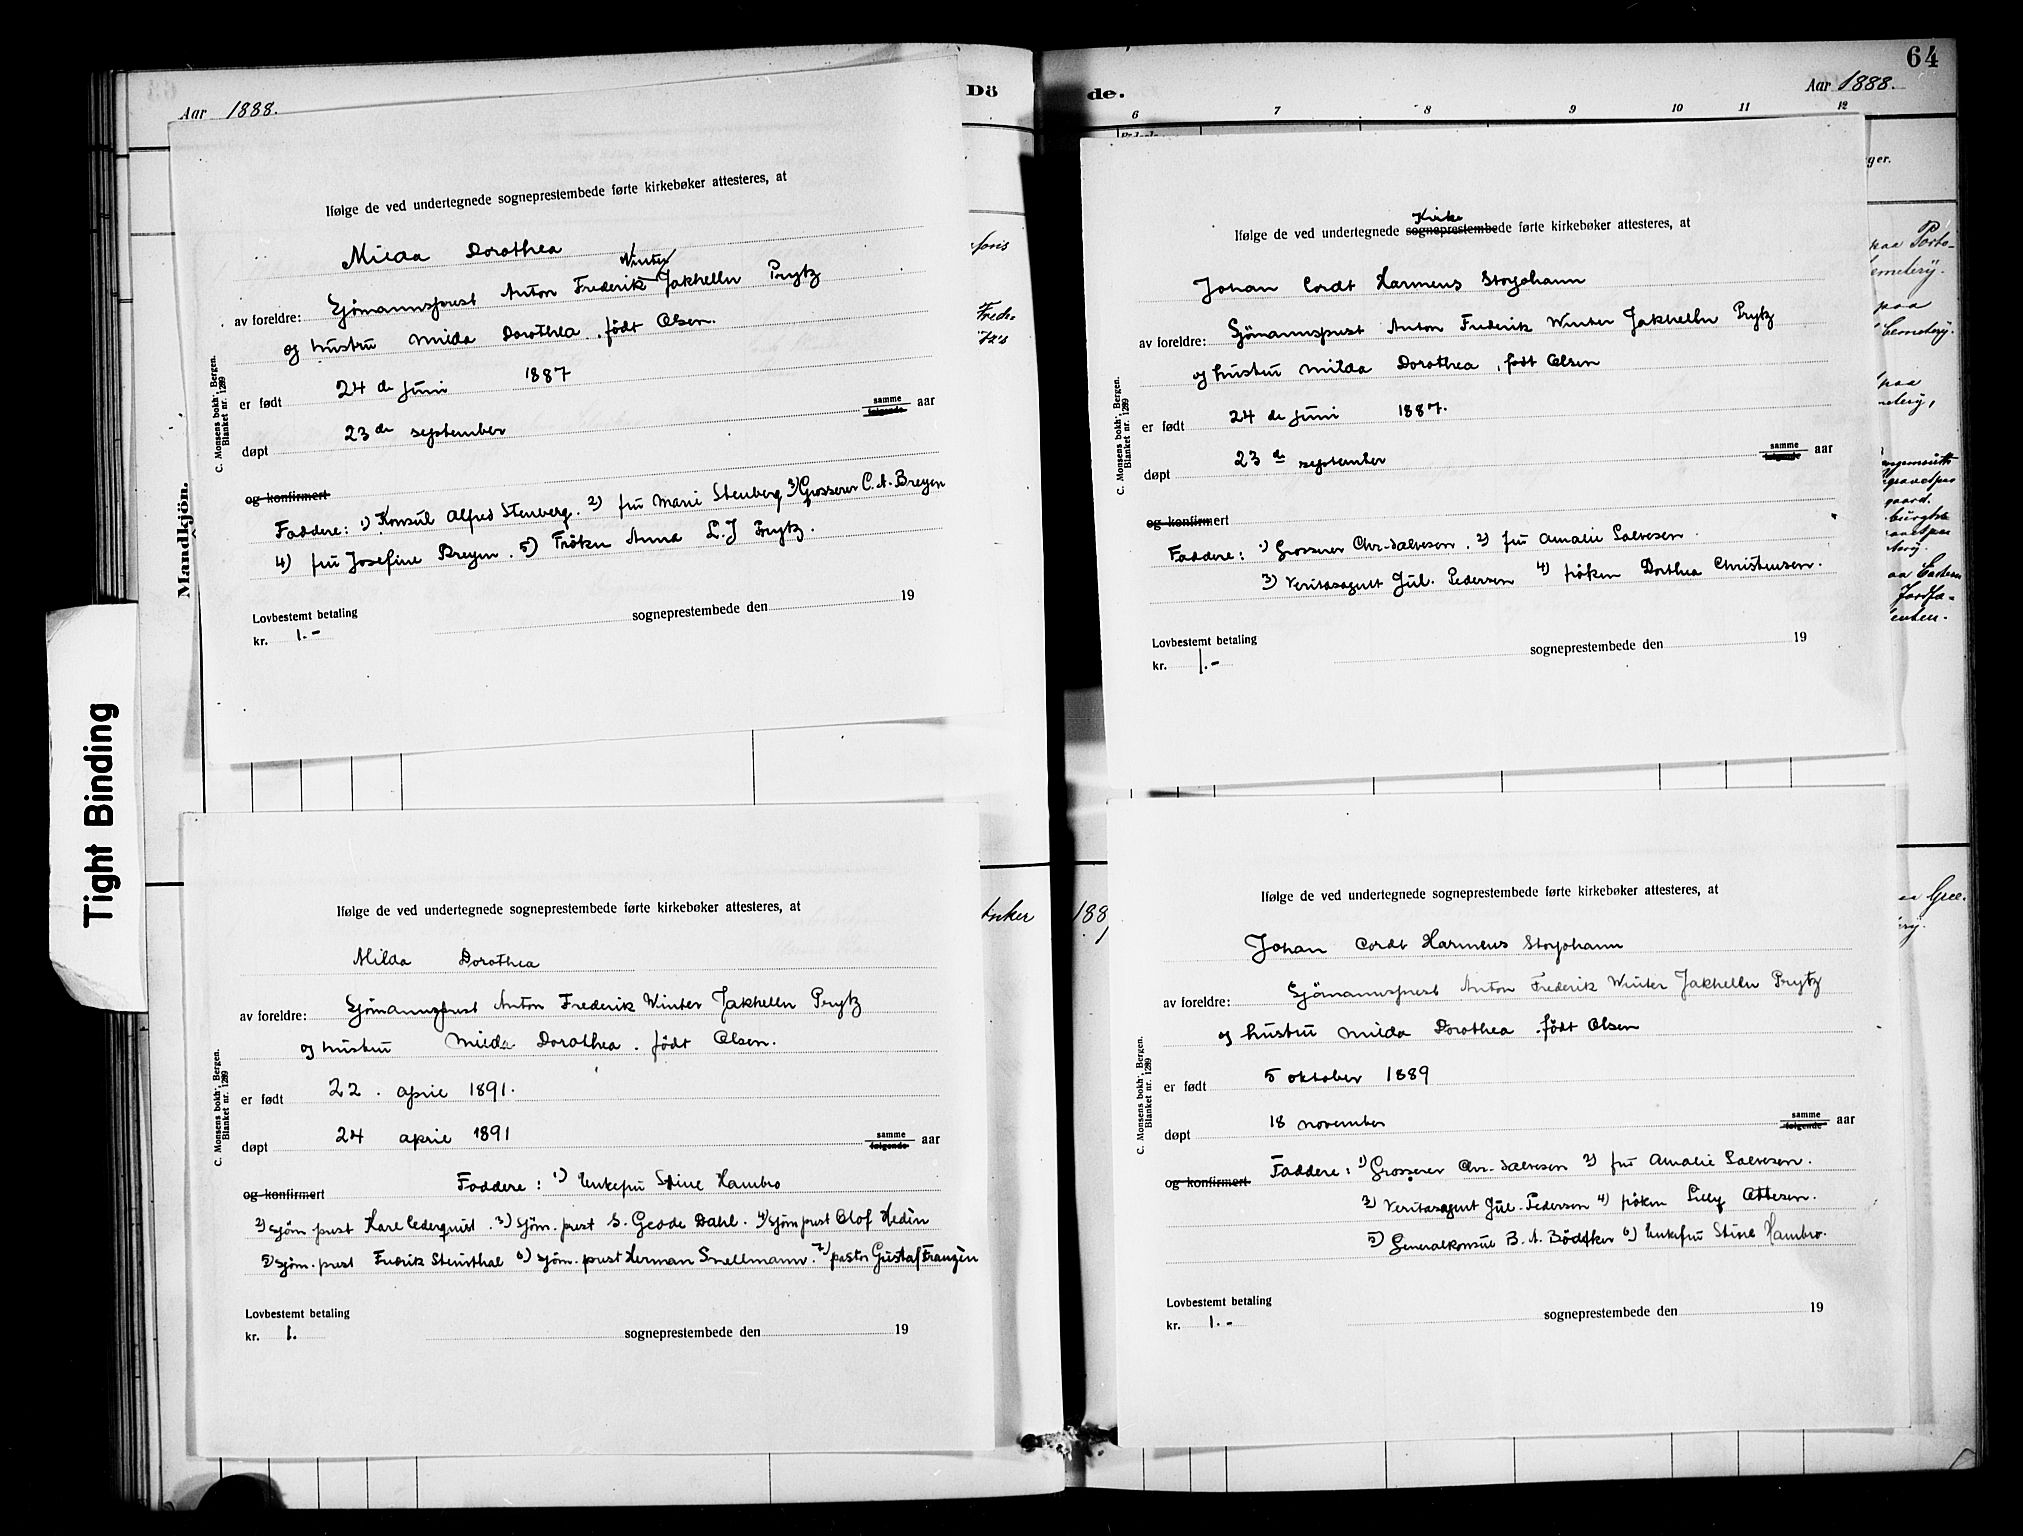 Aar 1888.
Dö
Mandkjön.
Tight Binding
Ifølge de ved undertegnede sogneprestembede førte kirkebøker attesteres, at
Milda Dorothea
Winter
av foreldre: Sjömannsprest Anton Frederik Jakhelln Prytz
og hustru Milda Dorothea, født Olsen.
er født 24 de juni 1887
døpt 23 de september samme følgende aar
og konfirmert
Faddere: 1) Konsul Alfred Stenberg. 2) fru Marie Stenberg 3) Grosserer C. A. Breyen
4) fru Josefine Breyen. 5) Fröken Anna L. J Prytz.
Lovbestemt betaling
kr. 1.-
sogneprestembede den 19
C. Monsens bokh., Bergen.
Blanket nr. 1289
Ifølge de ved undertegnede sogneprestembede førte kirkebøker attesteres, at
Milda Dorothea
av foreldre: Sjömannsprest Anton Frederik Winter Jakhelln Prytz
og hustru Milda Dorothea. födt Olsen.
er født 22. april 1891.
døpt 24 april 1891 samme følgende aar
og konfirmert Faddere: 1) Enkefru Stine Hambro
2) sjöm prest Karl Cederquist. 3) sjöm. prest S. Geode Dahl. 4) sjöm prest Olof Hedèn
5) sjöm. prest Fredrik Steinthal 6) sjöm. prest Herman Snellmann. 7) pastor Gustaf Franzèn
Lovbestemt betaling
kr. 1.
sogneprestembede den 19
C. Monsens bokh., Bergen.
Blanket nr. 1289
64
de.
Aar 1888.
6 7 8 9 10 11 12
Kirke
Ifølge de ved undertegnede sogneprestembede førte kirkebøker attesteres, at
Johan Cordt Harmens Storjohann
av foreldre: Sjömannsprest Anton Frederik Winter Jakhelln Prytz
og hustru Milda Dorothea, født Olsen
er født 24 de juni 1887.
døpt 23 de september samme følgende aar
og konfirmert
Faddere: 1) Grosserer Chr. Salvesen. 2) fru Amalie Salvesen.
3) Veritasagent Jul. Pedersen 4) fröken Dorthea Christensen.
Lovbestemt betaling
kr. 1.-
sogneprestembede den 19
C. Monsens bokh., Bergen.
Blanket nr. 1289
Ifølge de ved undertegnede sogneprestembede førte kirkebøker attesteres, at
Johan Cordt Harmens Storjohann
av foreldre: Sjömannsprest Anton Frederik Winter Jakhelln Prytz
og hustru Milda Dorothea. födt Olsen
er født 5 oktober 1889
døpt 18 november samme følgende aar
og konfirmert Faddere: 1) Grosserer Chr. Salvesen 2) fru Amalie Salvesen.
3) Veritasagent Jul. Pedersen 4) fröken Lilly Ottesen.
5) Generalkonsul B. A. Bödtker 6) Enkefru Stine Hambro.
Lovbestemt betaling
kr. 1.-
sogneprestembede den 19
C. Monsens bokh., Bergen.
Blanket nr. 1289